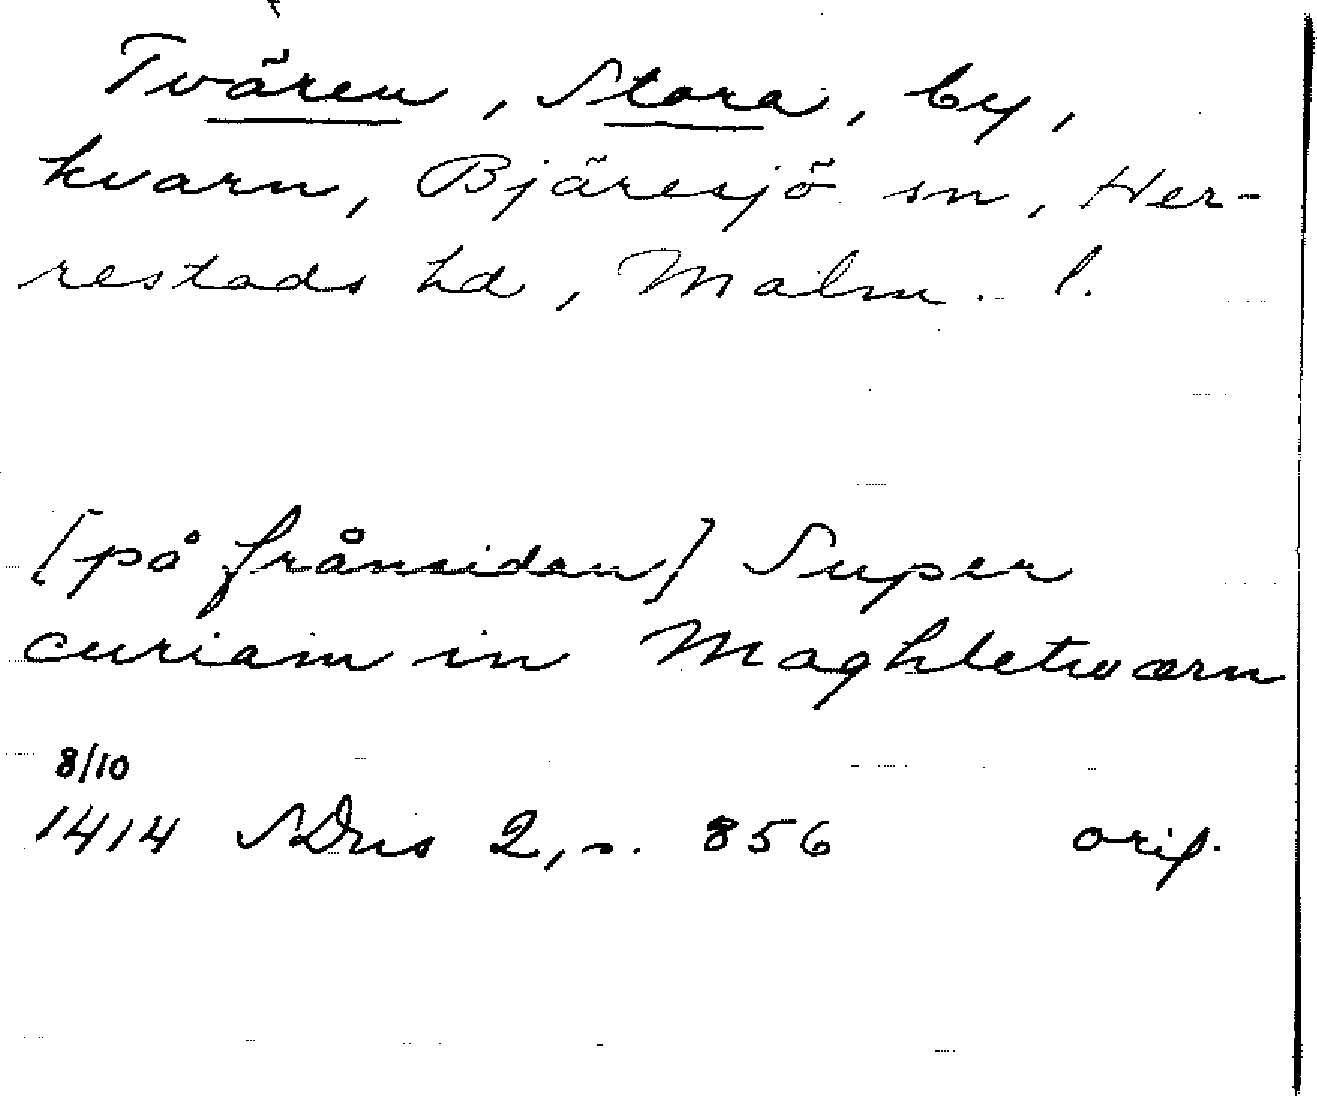 Tvären, Stora, by,
kvarn, Bjäresjö sn, Her-
restads hd, Malm. l.
[på frånsidan] Super
curiam in Maghletwærn
8/10
1414 SDns 2, s. 856 orig.